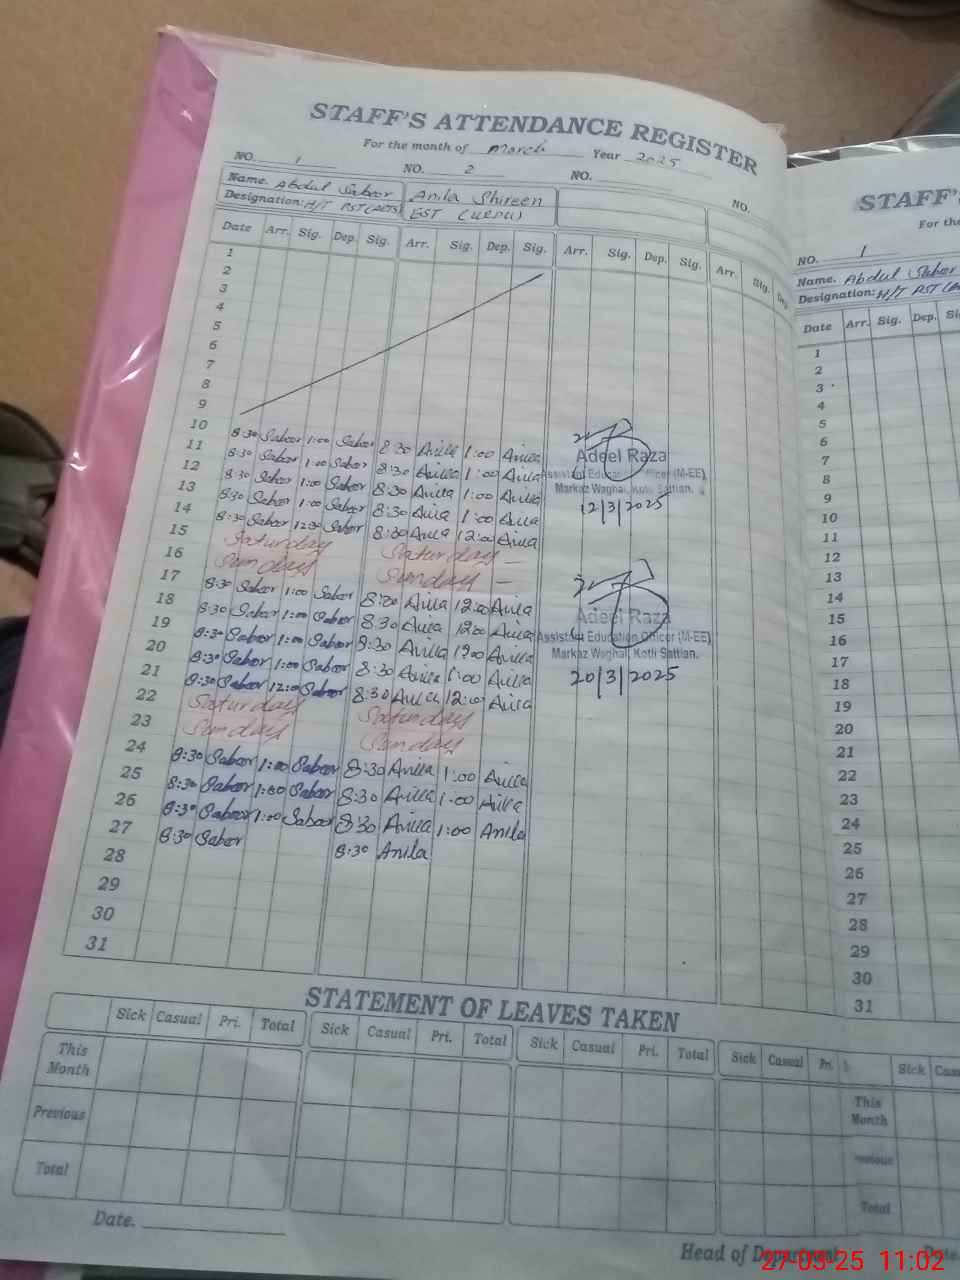 STAFF'S ATTENDANCE REGISTER
For the month of March Year 2025
NO. 1 NO. 2 NO. NO.
Name. Abdul Saboor Anila Shireen
Designation: H/T PST EST (URDU)
Date Arr. Sig. Dep. Sig. Arr. Sig. Dep. Sig. Arr. Sig. Dep. Sig. Arr. Sig.
1
2
3
4
5
6
7
8
9
10 8:30 Saboor 1:00 Saboor 8:30 Anila 1:00 Anila
11 8:30 Saboor 1:00 Saboor 8:30 Anila 1:00 Anila
12 8:30 Saboor 1:00 Saboor 8:30 Anila 1:00 Anila
13 8:30 Saboor 1:00 Saboor 8:30 Anila 1:00 Anila
14 8:30 Saboor 12:30 Saboor 8:30 Anila 12:00 Anila
15 Saturday Saturday
16 Sunday Sunday
17 8:30 Saboor 1:00 Saboor 8:30 Anila 12:00 Anila
18 8:30 Saboor 1:00 Saboor 8:30 Anila 12:00 Anila
19 8:30 Saboor 1:00 Saboor 8:30 Anila Anila
20 8:30 Saboor 1:00 Saboor 8:30 Anila 1:00 Anila
21 8:30 Saboor 12:00 Saboor 8:30 Anila 12:00 Anila
22 Saturday Saturday
23 Sunday Sunday
24 8:30 Saboor 1:00 Saboor 8:30 Anila 1:00 Anila
25 8:30 Saboor 1:00 Saboor 8:30 Anila 1:00 Anila
26 8:30 Saboor 1:00 Saboor 8:30 Anila 1:00 Anila
27 8:30 Saboor 8:30 Anila
28
29
30
31
Adeel Raza
Assistant Education Officer (M-EE)
Markaz Waghal, Kotli Sattian.
12/3/2025
Adeel Raza
Assistant Education Officer (M-EE)
Markaz Waghal, Kotli Sattian.
20/3/2025
STATEMENT OF LEAVES TAKEN
Sick Casual Pri. Total Sick Casual Pri. Total Sick Casual Pri. Total Sick Casual Pri.
This Month
Previous
Total
Date.
Head of Department
STAFF'S
For the
NO. 1
Name. Abdul Saboor
Designation: H/T PST
Date Arr. Sig. Dep.
1
2
3
4
5
6
7
8
9
10
11
12
13
14
15
16
17
18
19
20
21
22
23
24
25
26
27
28
29
30
31
Sick
This Month
Total
Date.
27-03-25 11:02